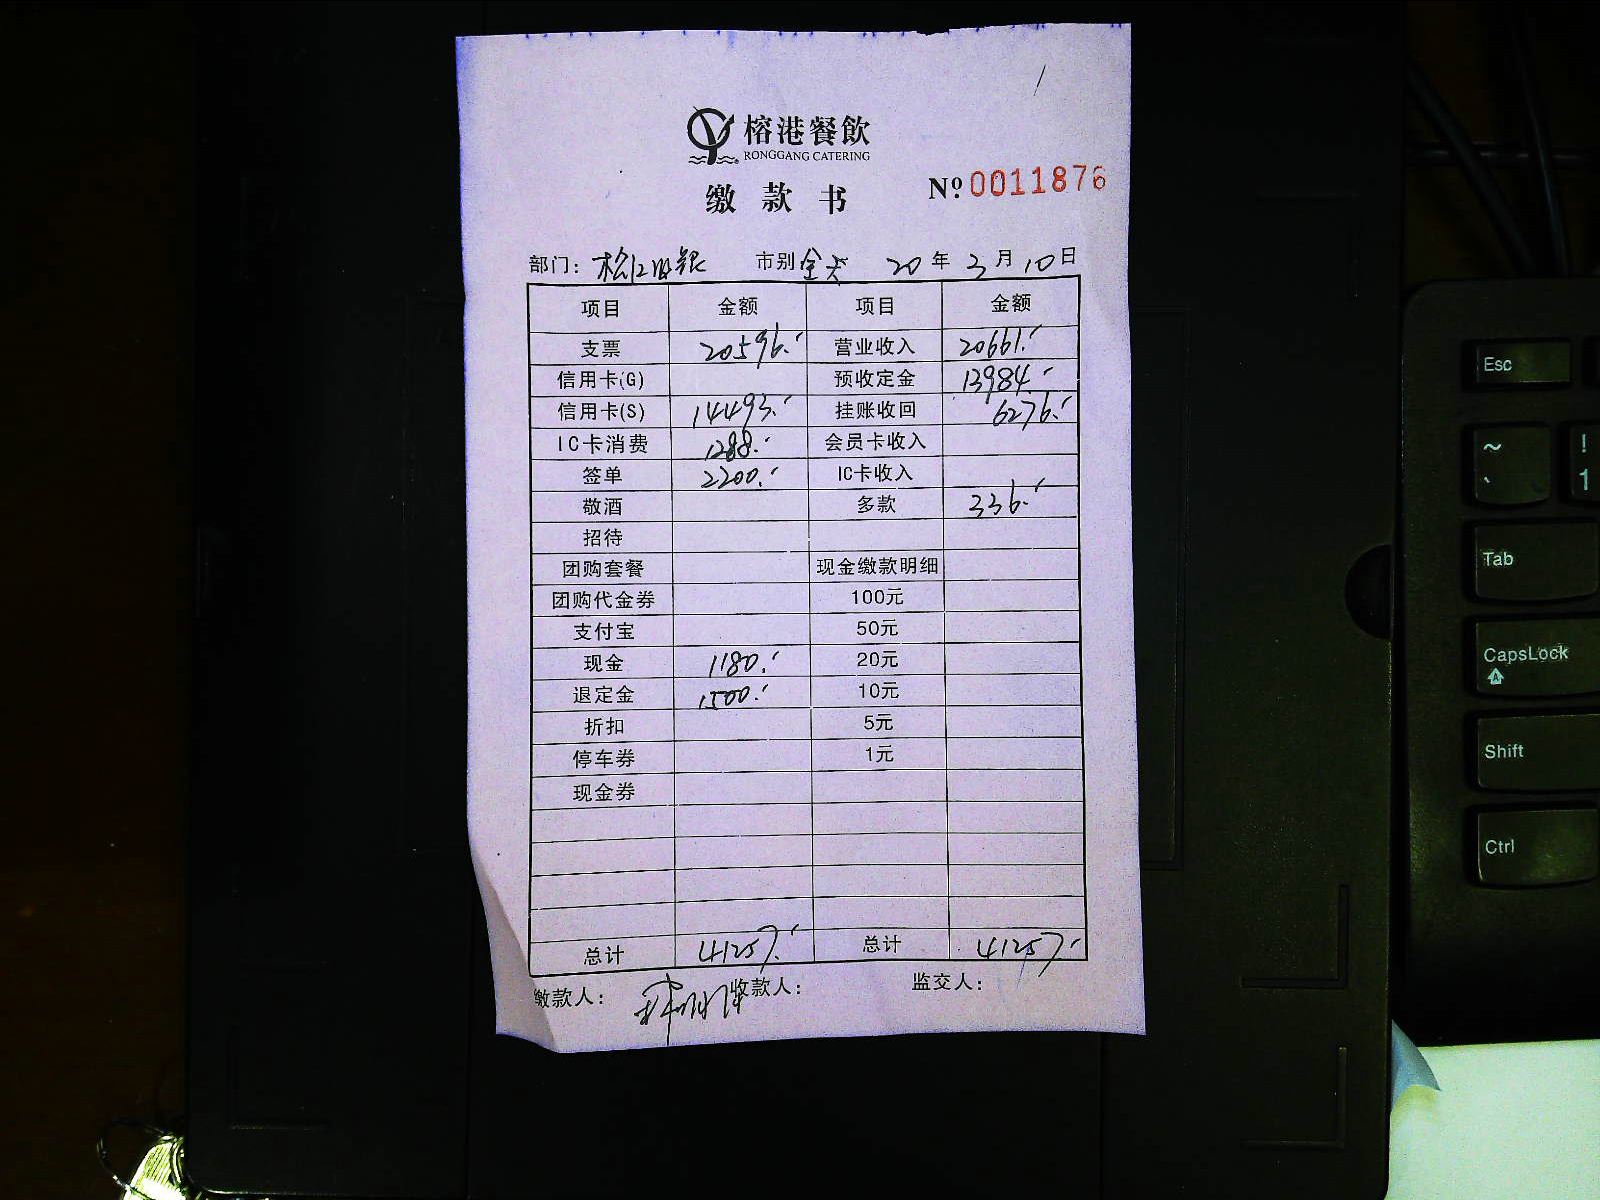 榕港餐飲
RONGGANG CATERING
缴款书 Nº 0011876
部门: 市别 全天 20 年 3 月 10 日
项目 金额 项目 金额
支票 20596.- 营业收入 20661.-
信用卡(G) 预收定金 13984.-
信用卡(S) 14493.- 挂账收回 6276.-
IC卡消费 1288.- 会员卡收入
签单 2200.- IC卡收入
敬酒 多款 336.-
招待
团购套餐 现金缴款明细
团购代金券 100元
支付宝 50元
现金 1180.- 20元
退定金 1500.- 10元
折扣 5元
停车券 1元
现金券
总计 41257.- 总计 41257.-
缴款人: 收款人: 监交人:
Esc
~ !
` 1
Tab
CapsLock
Shift
Ctrl